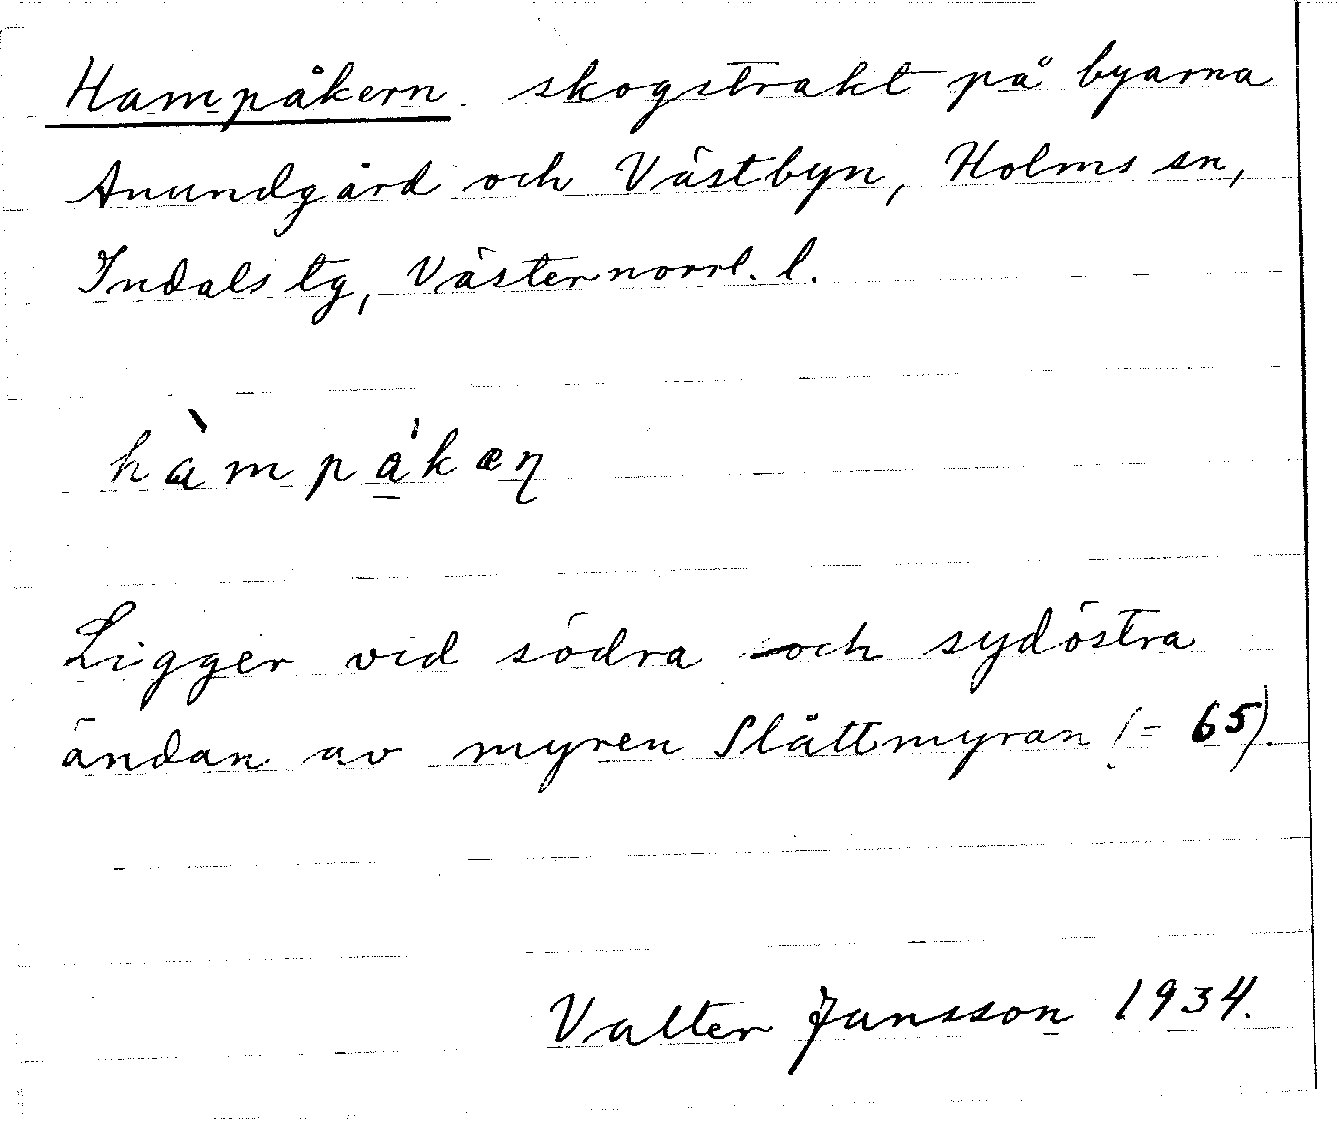 Hampåkern. skogstrakt på byarna
Anundgård och Västbyn, Holms sn,
Indals tg, Västernorrl. l.
hàmpákæn̥
Ligger vid södra och sydöstra
ändan av myren Slåttmyran (= 65).
Valter Jansson 1934.